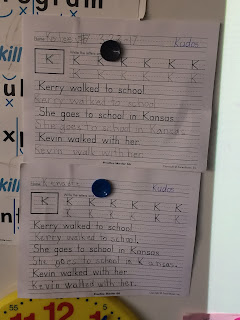 ogram
Kudos
K K K K K K K
K K K K K K
Kerry walked to school
Kerry walked to school
She goes to school in Kansas
She goes to school in Kansas
Kevin walked with her
Kevin walk with her
kill
Kudos
K K K K K K K
K K K K K K
Kerry walked to school
Kerry walked to school.
She goes to school in Kansas
She goes to school in Kansas.
Kevin walked with her
Kevin walked with her.
12